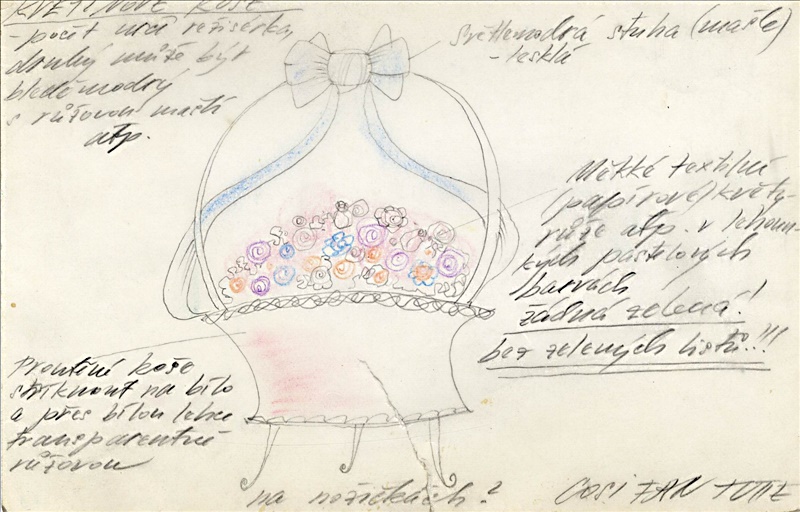 KVĚTINOVÉ KOŠE
- počet určí režisérka,
druhý může být
bledomodrý
s růžovou mašlí
atp.
Světlemodrá stuha (mašle)
- lesklá
Měkké textilní
(papírové) květy-
růže atp. v lehoun-
kých pastelových
barvách
žádná zelená!
bez zelených listů!!!
Proutěné koše
stříknout na bílo
a přes bílou lehce
transparentně
růžovou
na nožičkách?
COSI FAN TUTTE